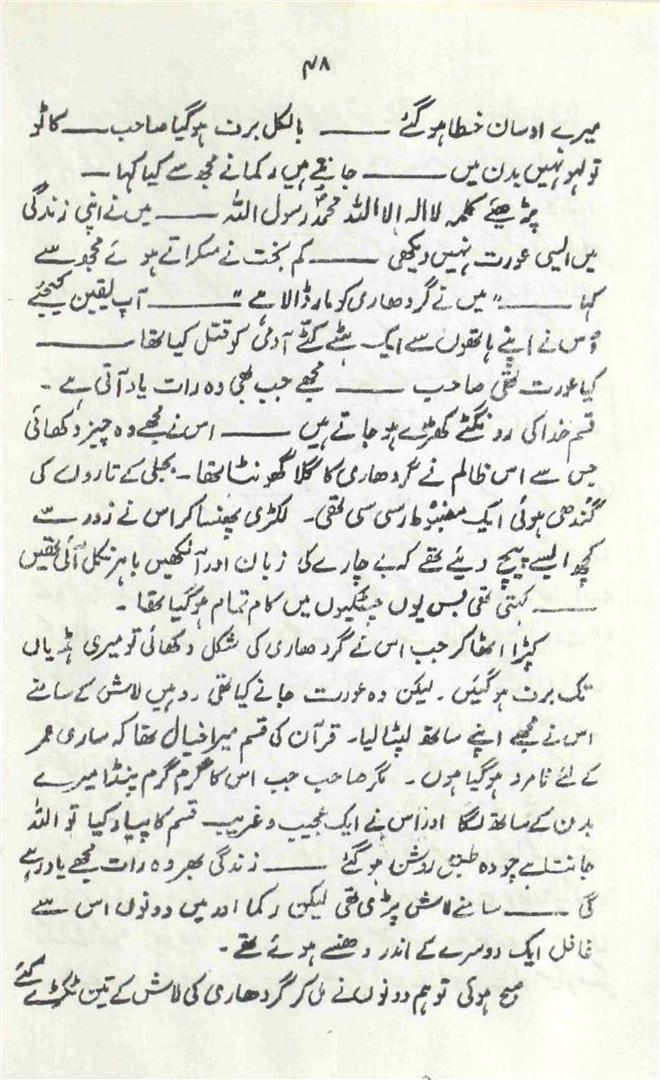 ۴۸
میرے اوسان خطا ہو گئے ——— بالکل برف ہو گیا صاحب —— کاٹو
تو لہو نہیں بدن میں ——— جانتے ہیں رکمانے مجھ سے کیا کہا —
پڑھیئے کلمہ لا الہ الا اللہ محمدؐ رسول اللہ ——— میں نے اپنی زندگی
میں ایسی عورت نہیں دیکھی ——— کم بخت نے مسکراتے ہوئے مجھ سے
کہا ——— "میں نے گردھاری کو مار ڈالا ہے" ——— آپ یقین کیجئیے
اُس نے اپنے ہاتھوں سے ایک ہٹے کٹے آدمی کو قتل کیا تھا ———
کیا عورت تھی صاحب ——— مجھے جب بھی وہ رات یاد آتی ہے۔
قسم خدا کی رونگٹے کھڑے ہو جاتے ہیں ——— اس نے مجھے وہ چیز دکھائی
جس سے اس ظالم نے گردھاری کا گلا گھونٹا تھا۔ بجلی کے تاروں کی
گندھی ہوئی ایک مضبوط رسی سی تھی۔ لکڑی پھنسا کر اس نے زور سے
کچھ ایسے پیچ دیئے تھے کہ بے چارے کی زبان اور آنکھیں باہر نکل آئی تھیں
——— کہتی تھی بس یوں چٹکیوں میں کام تمام ہو گیا تھا۔
کپڑا اٹھا کر جب اس نے گردھاری کی شکل دکھائی تو میری ہڈیاں
تک برف ہو گئیں۔ لیکن وہ عورت جانے کیا تھی۔ وہیں لاش کے سامنے
اس نے مجھے اپنے ساتھ لپٹا لیا۔ قرآن کی قسم میرا خیال تھا کہ ساری عمر
کے لئے نامرد ہو گیا ہوں۔ مگر صاحب جب اس کا گرم گرم پنڈا میرے
بدن کے ساتھ لگا اور اس نے ایک عجیب و غریب قسم کا پیار کیا تو اللہ
جانتا ہے چودہ طبق روشن ہو گئے ——— زندگی بھر وہ رات مجھے یاد رہے
گی ——— سامنے لاش پڑی تھی لیکن رکما اور میں دونوں اس سے
غافل ایک دوسرے کے اندر دھنسے ہوئے تھے۔
صبح ہوئی تو ہم دونوں نے مل کر گردھاری کی لاش کے تین ٹکڑے کئے